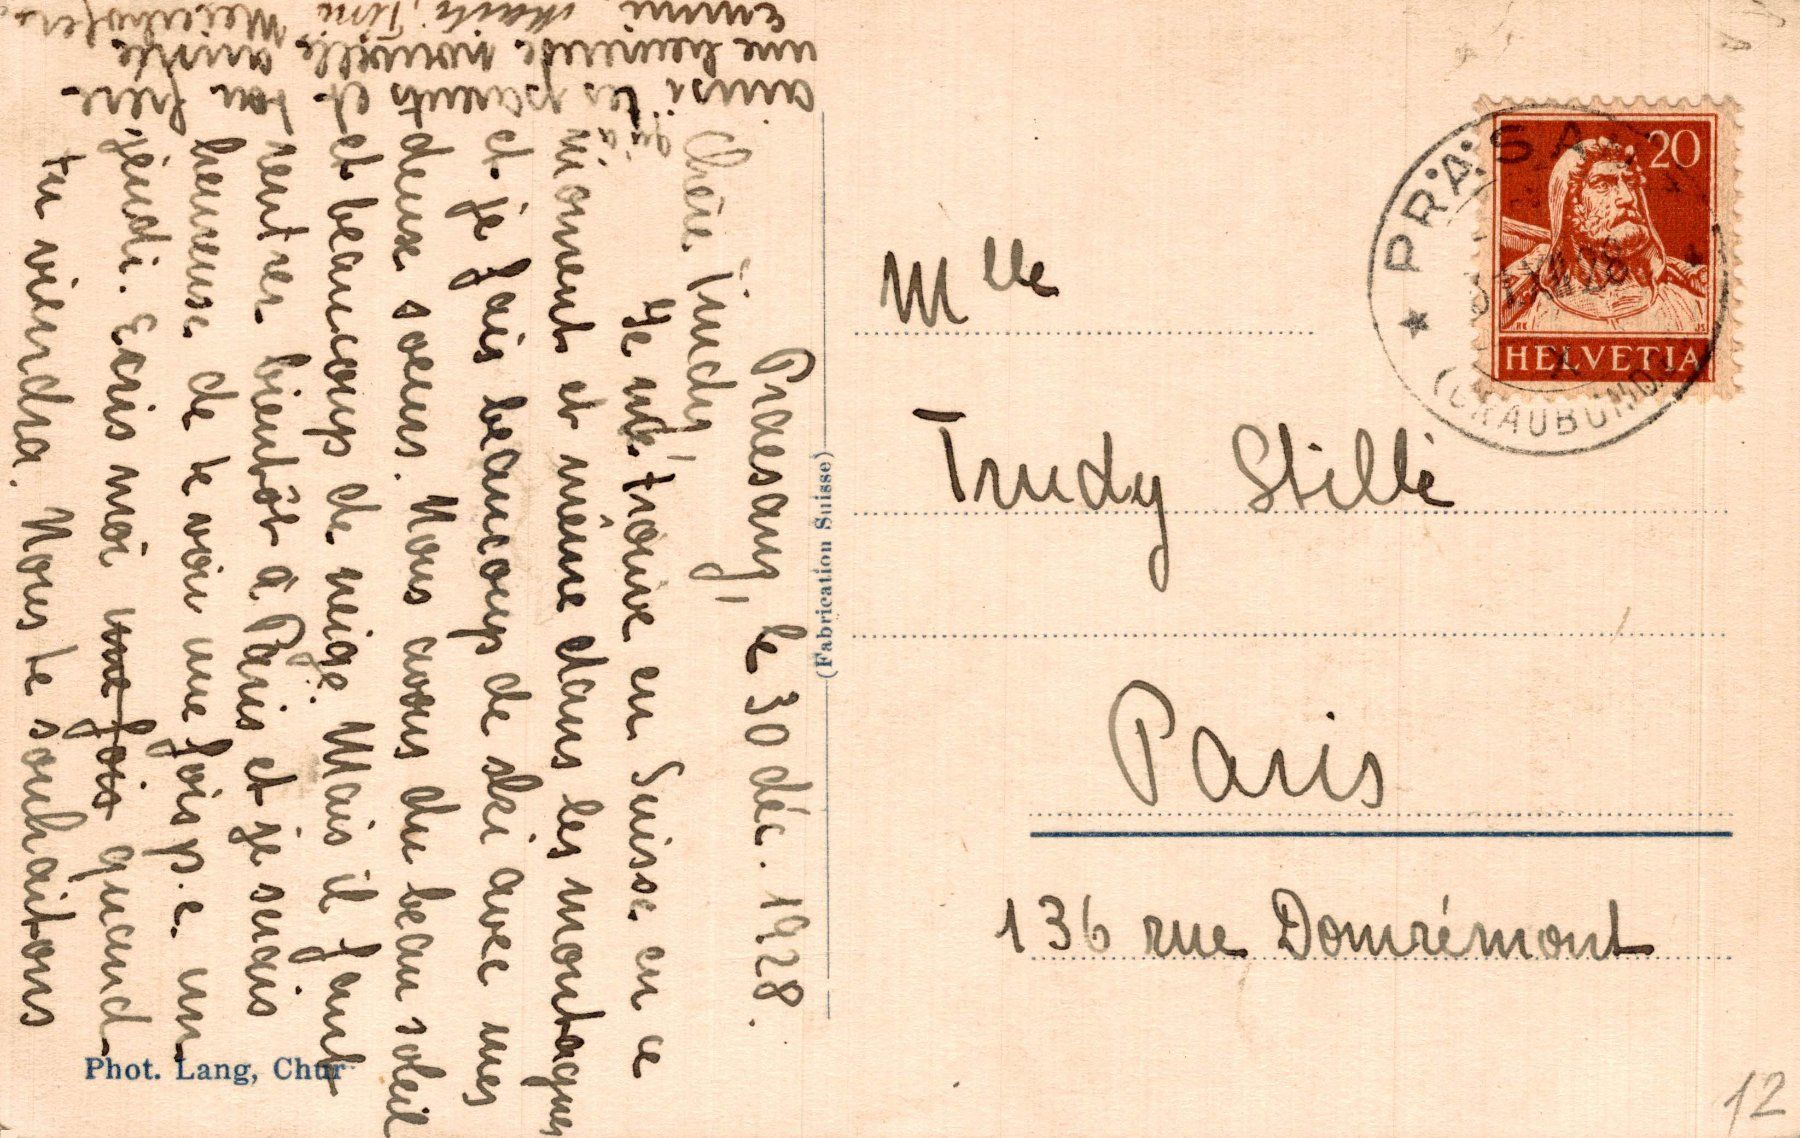 Praesanz, le 30 déc. 1928.
Chère Trudy,
Je me trouve en Suisse en ce
moment et même dans les montagnes
et je fais beaucoup de ski avec mes
deux soeurs. Nous avons du beau soleil
et beaucoup de neige. Mais il faut
rentrer bientôt à Paris et je serais
heureuse de te voir une fois p.e. un
jeudi. Ecris moi une fois quand
tu viendra. Nous te souhaitons
ainsi qu'à tes parents et ton frère
une heureuse nouvelle année
Emmi,
(Fabrication Suisse)
Phot. Lang, Chur
PRÄSANZ
31.XII.28
(GRAUBÜNDEN)
20
HELVETIA
Mlle
Trudy Stilli
Paris
136 rue Domrémont
12